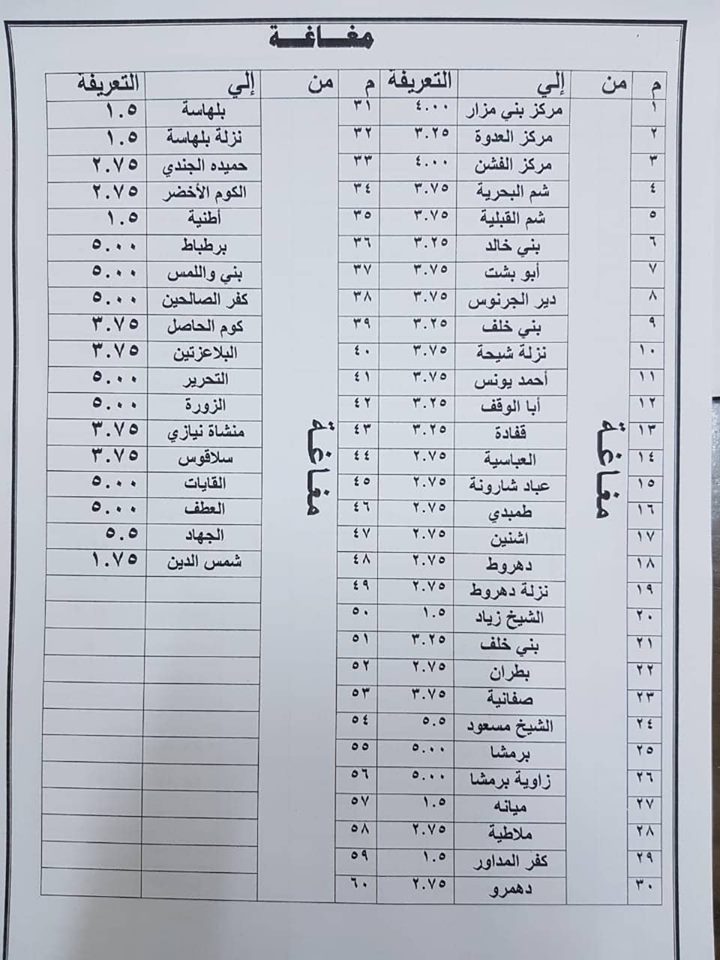 مغاغة
م من إلي التعريفة م من إلي التعريفة
١ مركز بني مزار ٤.٠٠ ٣١ بلهاسة ١.٥
٢ مركز العدوة ٣.٢٥ ٣٢ نزلة بلهاسة ١.٥
٣ مركز الفشن ٤.٠٠ ٣٣ حميده الجندي ٢.٧٥
٤ شم البحرية ٣.٧٥ ٣٤ الكوم الأخضر ٢.٧٥
٥ شم القبلية ٣.٧٥ ٣٥ أطنية ١.٥
٦ بني خالد ٣.٢٥ ٣٦ برطباط ٥.٠٠
٧ أبو بشت ٣.٧٥ ٣٧ بني واللمس ٥.٠٠
٨ دير الجرنوس ٣.٧٥ ٣٨ كفر الصالحين ٥.٠٠
٩ بني خلف ٣.٢٥ ٣٩ كوم الحاصل ٣.٧٥
١٠ نزلة شيحة ٣.٧٥ ٤٠ البلاعزتين ٣.٧٥
١١ أحمد يونس ٣.٧٥ ٤١ التحرير ٥.٠٠
١٢ أبا الوقف ٣.٢٥ ٤٢ الزورة ٥.٠٠
١٣ مغاغة قفادة ٣.٢٥ ٤٣ مغاغة منشاة نيازي ٣.٧٥
١٤ العباسية ٢.٧٥ ٤٤ سلاقوس ٣.٧٥
١٥ عباد شارونة ٢.٧٥ ٤٥ القايات ٥.٠٠
١٦ طمبدي ٢.٧٥ ٤٦ العطف ٥.٠٠
١٧ اشنين ٢.٧٥ ٤٧ الجهاد ٥.٥
١٨ دهروط ٢.٧٥ ٤٨ شمس الدين ١.٧٥
١٩ نزلة دهروط ٢.٧٥ ٤٩
٢٠ الشيخ زياد ١.٥ ٥٠
٢١ بني خلف ٣.٢٥ ٥١
٢٢ بطران ٢.٧٥ ٥٢
٢٣ صفانية ٣.٧٥ ٥٣
٢٤ الشيخ مسعود ٥.٥ ٥٤
٢٥ برمشا ٥.٠٠ ٥٥
٢٦ زاوية برمشا ٥.٠٠ ٥٦
٢٧ ميانه ١.٥ ٥٧
٢٨ ملاطية ٢.٧٥ ٥٨
٢٩ كفر المداور ١.٥ ٥٩
٣٠ دهمرو ٢.٧٥ ٦٠